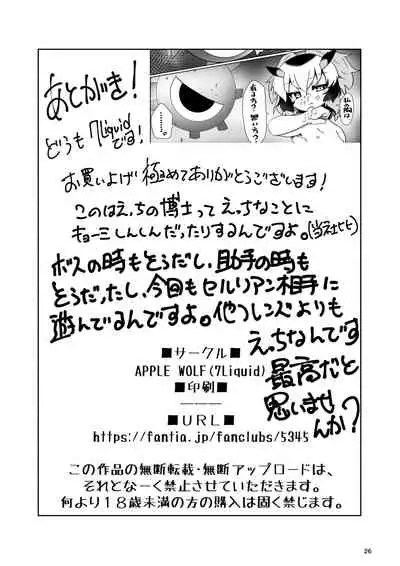 あとがき！
どうも7Liquidです！
お買いよげ極めてありがとうございます！
このはえっちの博士ってえっちなことに
キョーミしんしんだったりするんですよ。(当社ヒヒ)
ボスの時もそうだし、助手の時も
そうだったし、今回もセルリアン相手に
遊んでるんですよ。他フレンズよりも
えっちなんです
最高だと
思いませ
んか？
■サークル■
APPLE WOLF(7Liquid)
■印刷■
———
■URL■
https://fantia.jp/fanclubs/5345
この作品の無断転載・無断アップロードは、
それとなーく禁止させていただきます。
何より18歳未満の方の購入は固く禁じます。
26